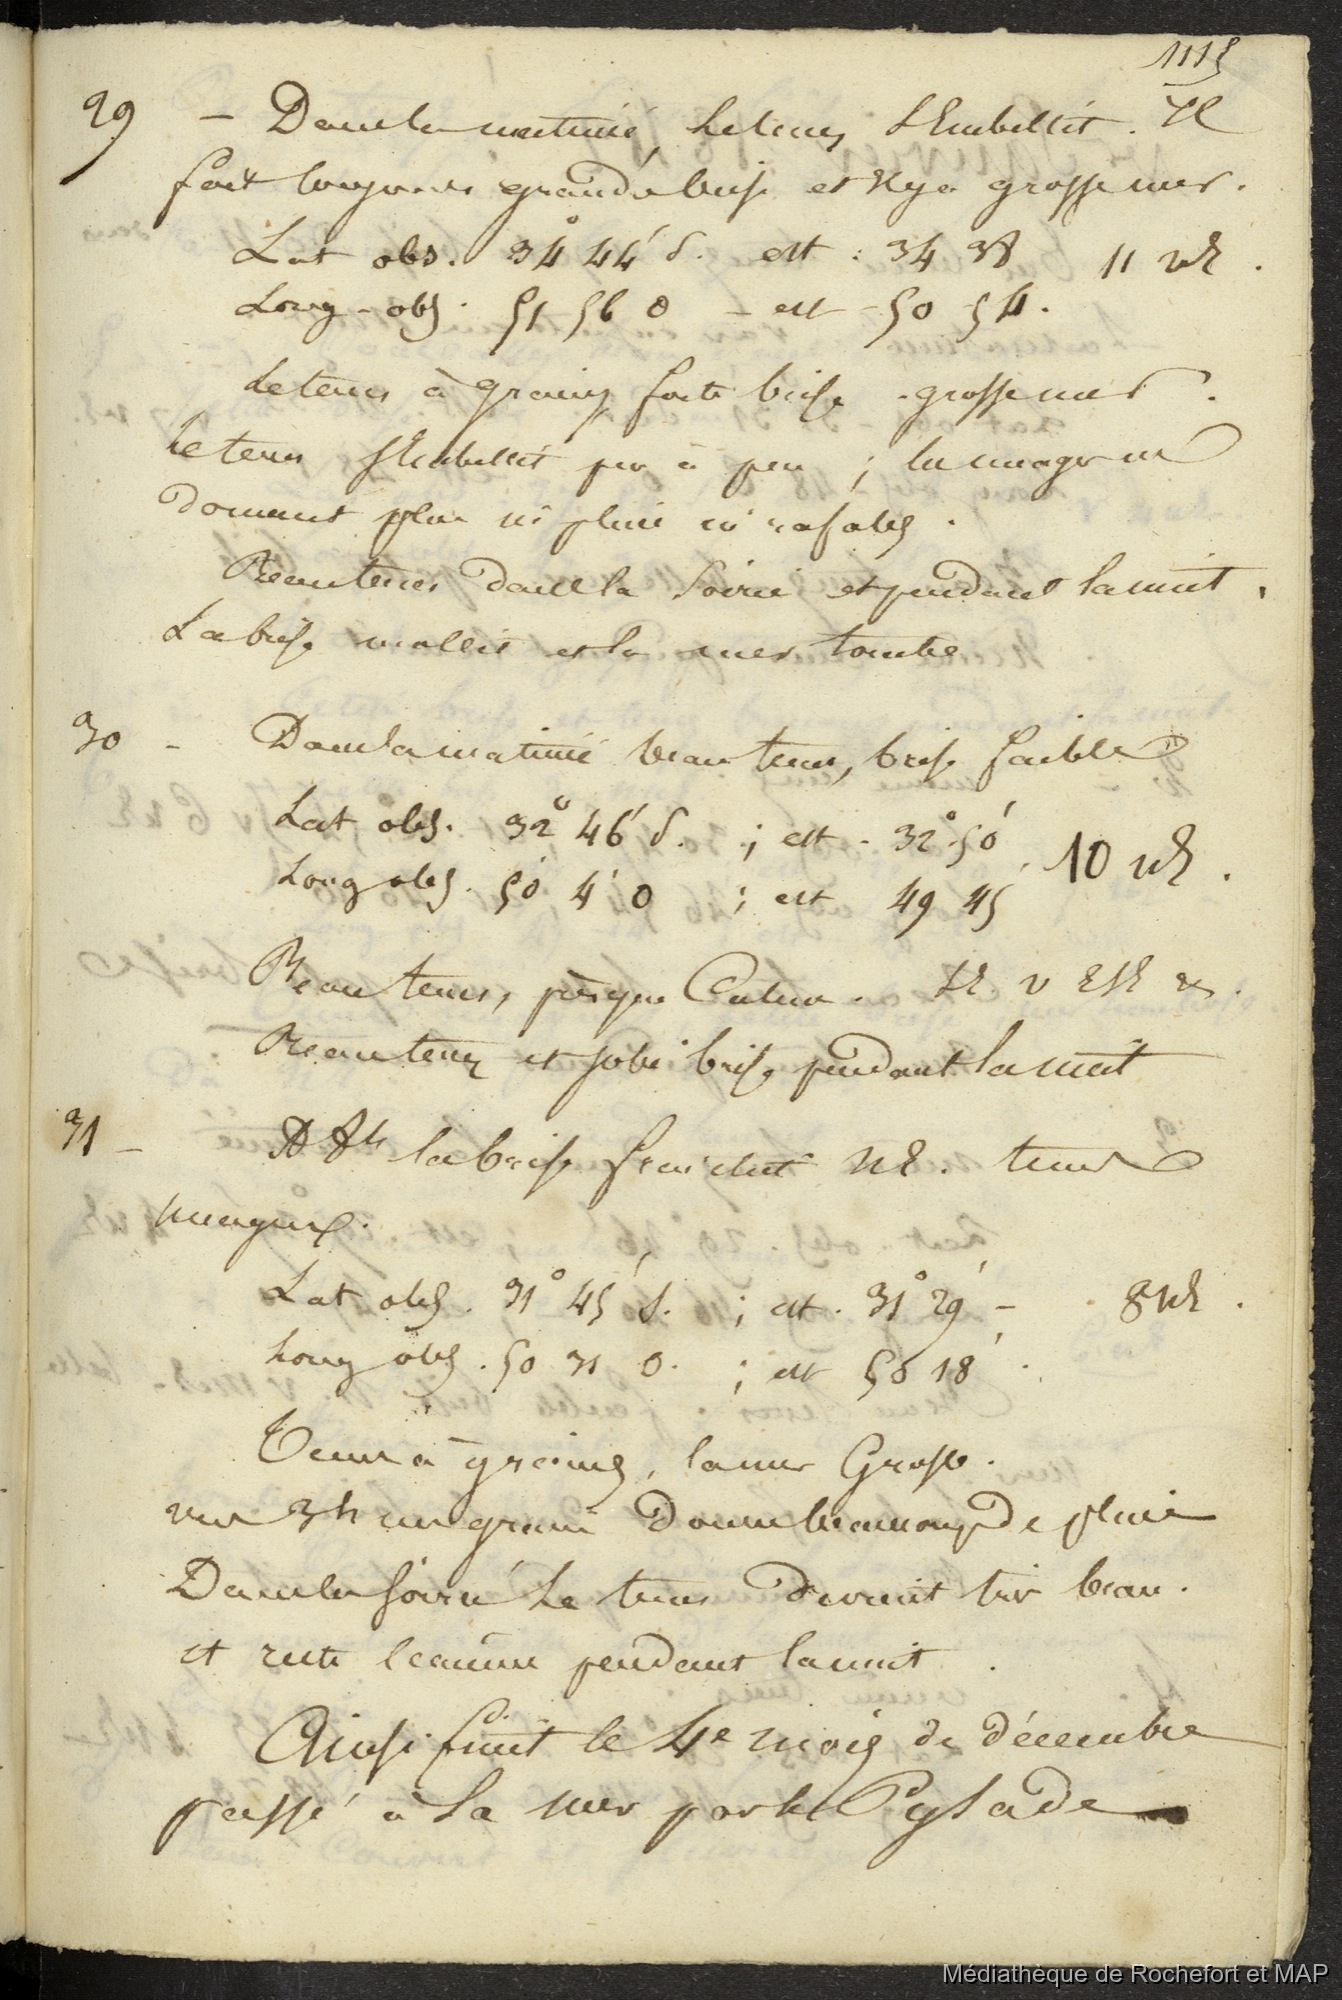 1115
29 – Dans la matinée, le tems s'Embellit. Il
fait toujours grande brise et Il y a grosse mer.
Lat obs. 34° 44' S. est : 34 38 11 nE.
Long - obs. 51 56 O – est - 50 54.
Le tems à grains forte brise . grosse mer.
Le tems s'Embellit peu à peu ; les nuages ne
donnent plus ni pluie ni rafales.
Beau tems dans la soirée et pendant la nuit.
La brise mollit et la mer tombe
30 – Dans la matinée beau tems, brise faible
Lat obs. 32° 46' S. ; est - 32° 50'
10 nE.
Long obs. 50 4' O ; est 49 45
Beau tems, presque Calme.
Beau tems et jolie brise pendant la nuit
31 – A 8h la brise fraichit NE. tems
nuageux.
Lat obs. 31° 45' S. ; est. 31° 29' – 8 nE.
Long obs. 50 31 O. ; est 50 18'.
Tems à grains, la mer Grosse.
vers 3h un grain donne beaucoup de pluie
Dans la soirée Le tems devient très beau.
et reste le même pendant la nuit.
Ainsi finit le 4e mois de décembre
passé à la mer par le Pylade
Médiathèque de Rochefort et MAP